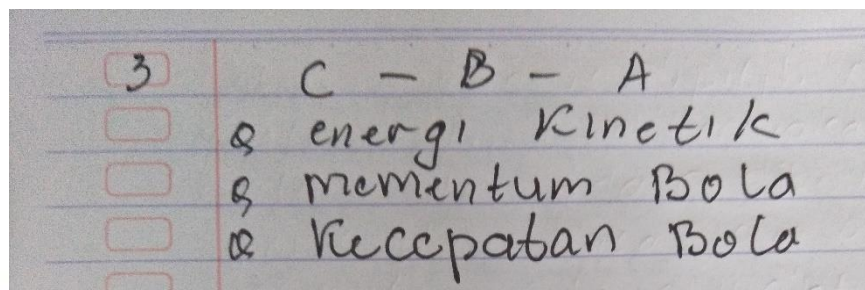 3 C - B - A
energi kinetik
momentum Bola
Kecepatan Bola